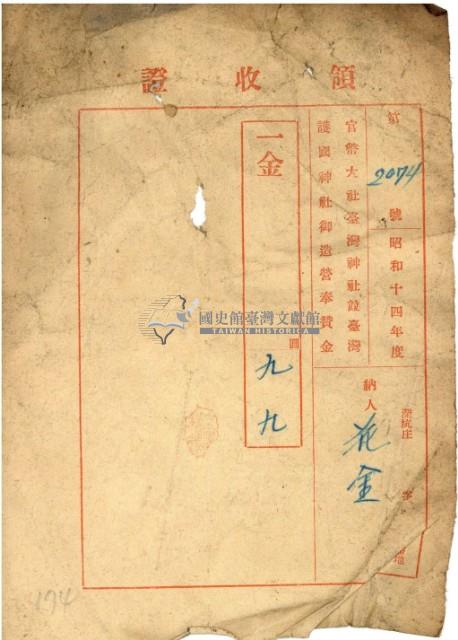 領收證
第2074號
昭和十四年度
官幣大社臺灣神社竝臺灣
護國神社御造營奉賛金
一金
圓
九九
納人
深坑庄
字
花金
國史館臺灣文獻館
TAIWAN HISTORICA
194